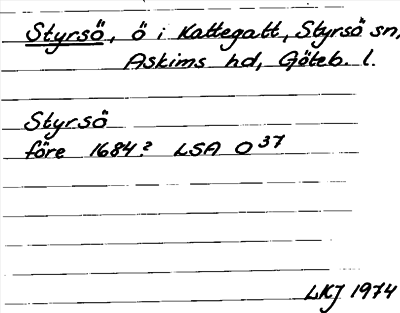 Styrsö, ö i Kattegatt, Styrsö sn,
Askims hd, Göteb. l.
Styrsö
före 1684? LSA O37
LKJ 1974